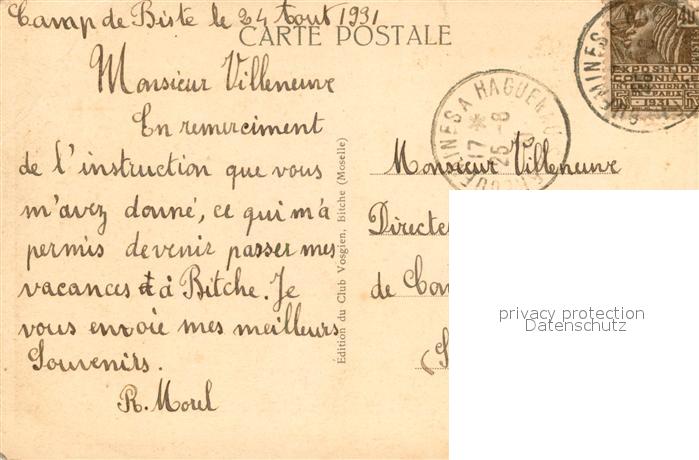 Camp de Biste le 24 Aout 1931
CARTE POSTALE
Monsieur Villeneuve
En remerciment
de l'instruction que vous
m'avez donné, ce qui m'a
permis devenir passer mes
vacances à Bitche. Je
vous envoie mes meilleurs
Souvenirs.
R. Morel
Édition du Club Vosgien, Bitche (Moselle)
A HAGUENAU
17 *
25 -8
EXPOSITION
COLONIALE
INTERNATIONALE
PARIS
1931
Monsieur Villeneuve
Directe
de Con
(S
privacy protection
Datenschutz